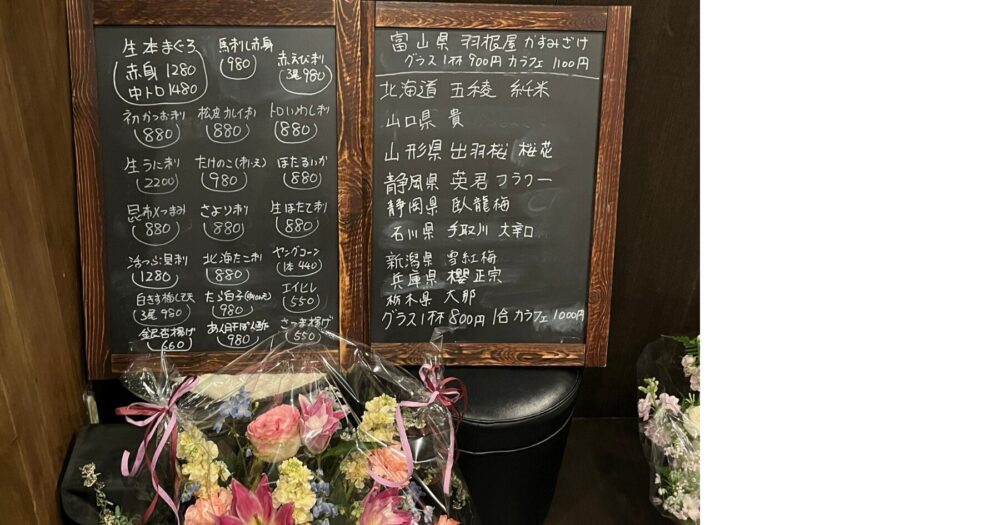 生本まぐろ
赤身 1280
中トロ 1480
馬刺し赤身
980
赤えび刺
3尾 980
初かつお刺
880
松皮カレイ刺
880
トロいわし刺
880
生うに刺
2200
たけのこ(刺・天)
980
ほたるいか
880
昆布〆つまみ
880
さより刺
880
生ほたて刺
880
活つぶ貝刺
1280
北海たこ刺
880
ヤングコーン
1本 440
白きす梅しそ天
3尾 980
たら白子
980
エイヒレ
550
銀杏揚げ
660
あん肝ぽん酢
980
さつま揚げ
550
富山県 羽根屋 かすみざけ
グラス1杯 900円 カラフェ 1100円
北海道 五稜 純米
山口県 貴
山形県 出羽桜 桜花
静岡県 英君 フラワー
静岡県 臥龍梅
石川県 手取川 大辛口
新潟県 雪紅梅
兵庫県 櫻正宗
栃木県 大那
グラス1杯 800円 1合 カラフェ 1000円